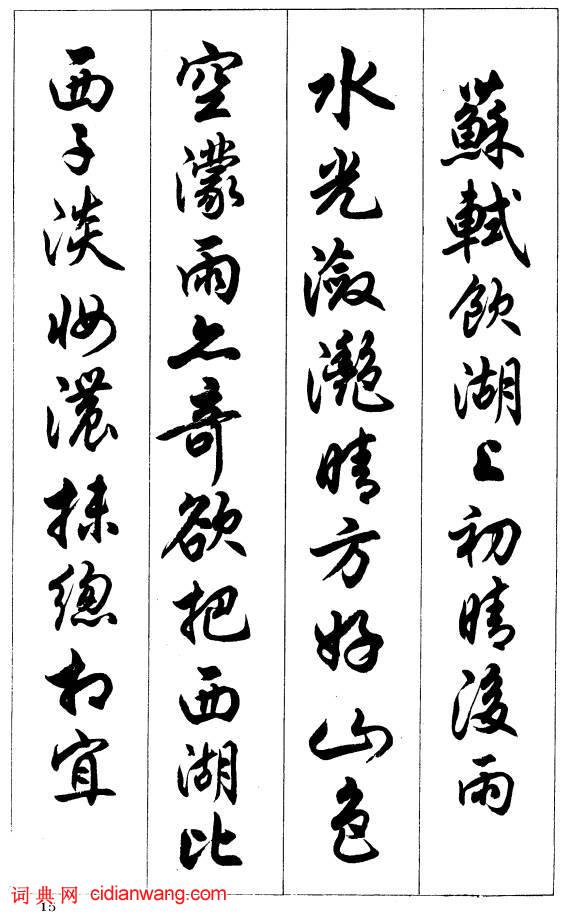 蘇軾飲湖上初晴後雨
水光瀲灩晴方好山色
空濛雨亦奇欲把西湖比
西子淡妝濃抹總相宜
词典网 cidianwang.com
15